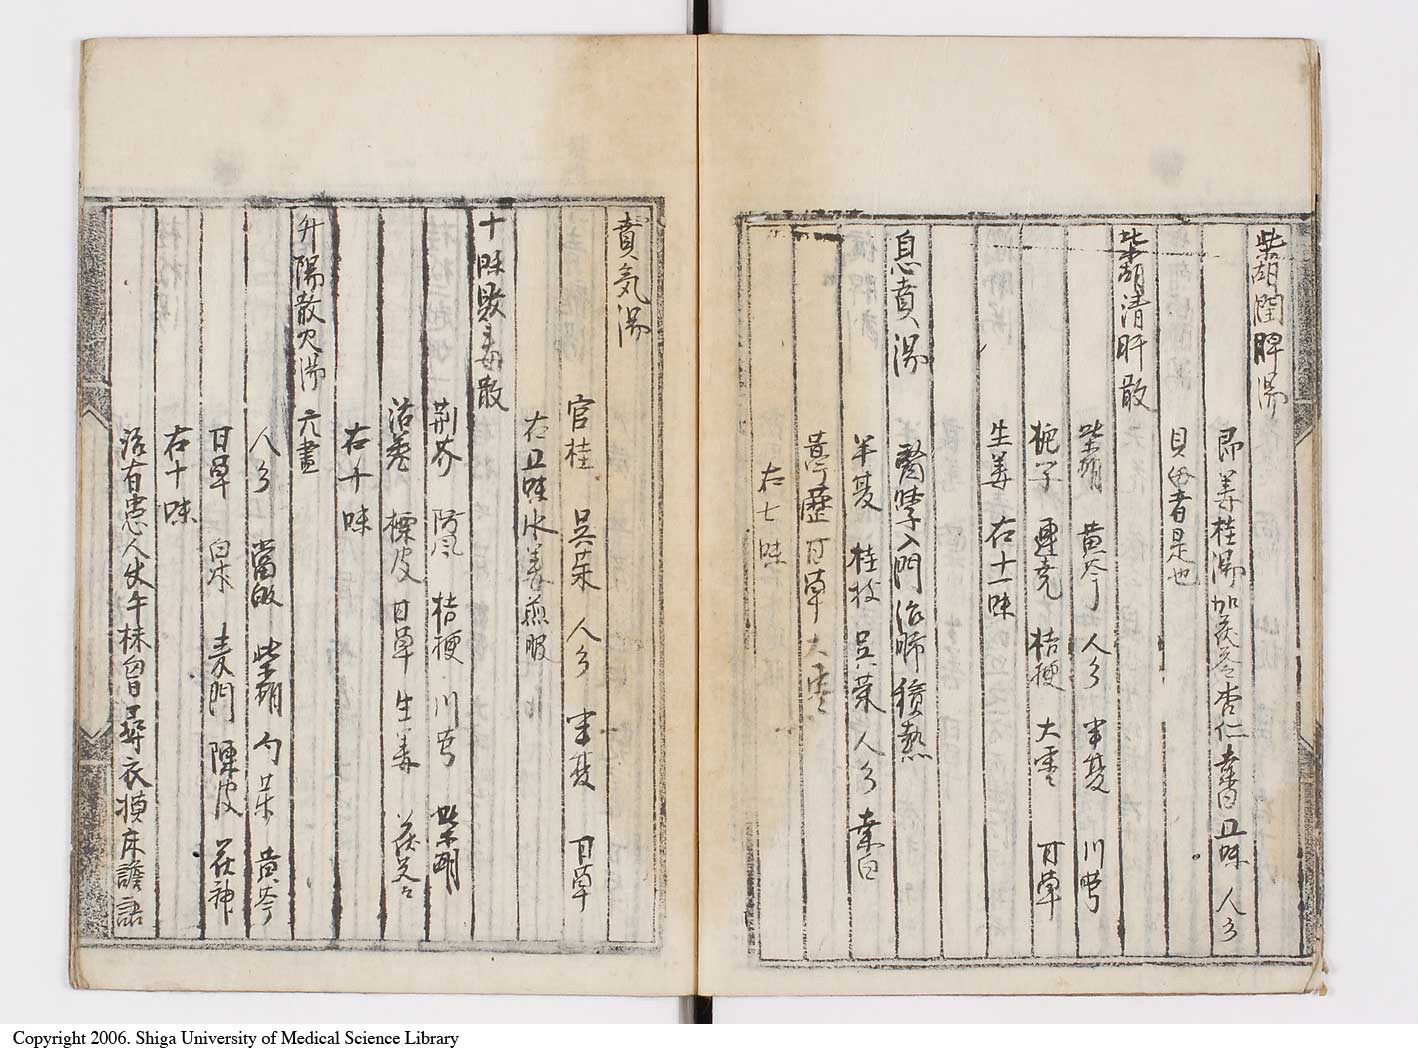 柴胡潤脾湯
即姜桂湯加茯苓杏仁桑白五味人參
貝母者是也
柴胡清肝散
柴胡 黄芩 人參 半夏 川芎
梔子 連壳 桔梗 大棗 甘草
生姜 右十一味
息賁湯
醫學入門治肺積熱
半夏 桂枝 吳茱 人參 桑白
葶歷 甘草 大棗
右七味
賁気湯
官桂 吳茱 人參 半夏 甘草
右五味水姜煎服
十味敗毒散
荊芥 防風 桔梗 川芎 柴胡
沽羗 樸皮 甘草 生姜 茯苓
右十味
升陽散火湯 六書
人參 當皈 柴胡 勺茱 黄芩
甘草 白朮 麦門 陳皮 茯神
右十味
治有患人失手揉曽尋衣摸床譫語
Copyright 2006. Shiga University of Medical Science Library